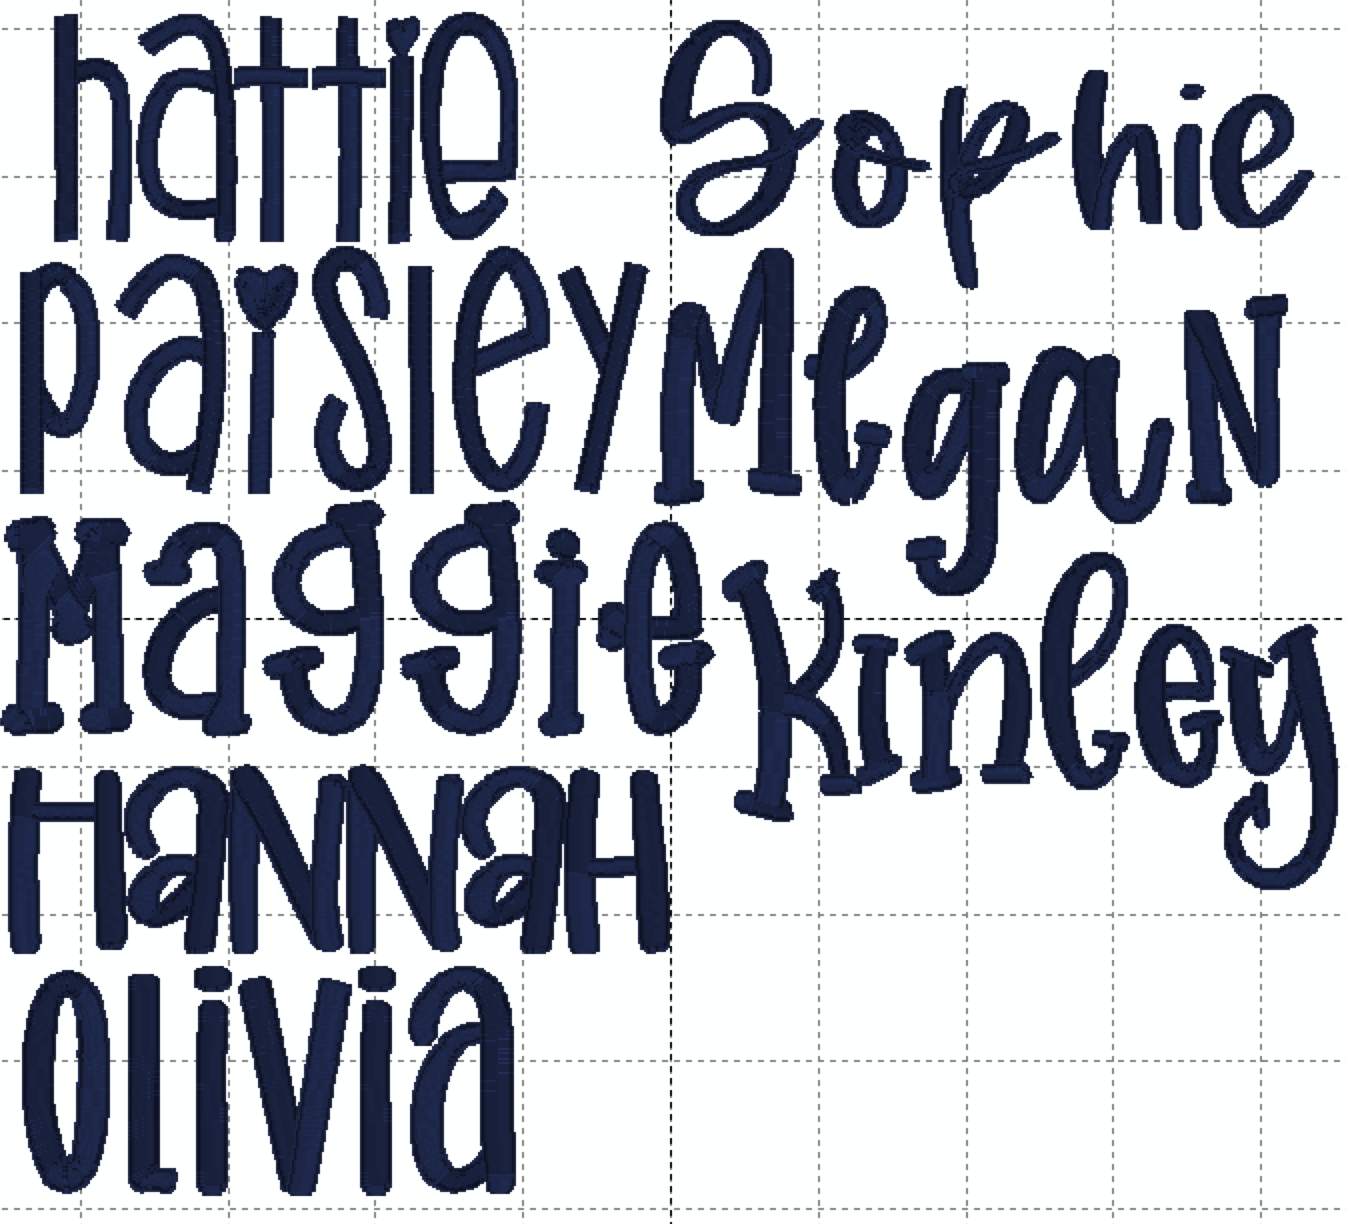 hattie
Sophie
paisley
MegaN
Maggie
Kinley
HaNNaH
OLiVia